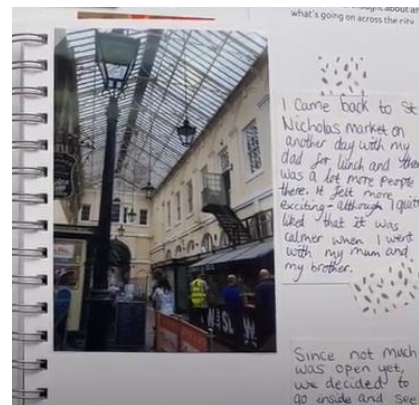 what's going on across the city.
I came back to St
Nicholas market on
another day with my
dad for lunch and there
was a lot more people
there. It felt more
exciting - although I quite
liked that it was
calmer when I went
with my mum and
my brother.
Since not much
was open yet,
we decided to
go inside and see